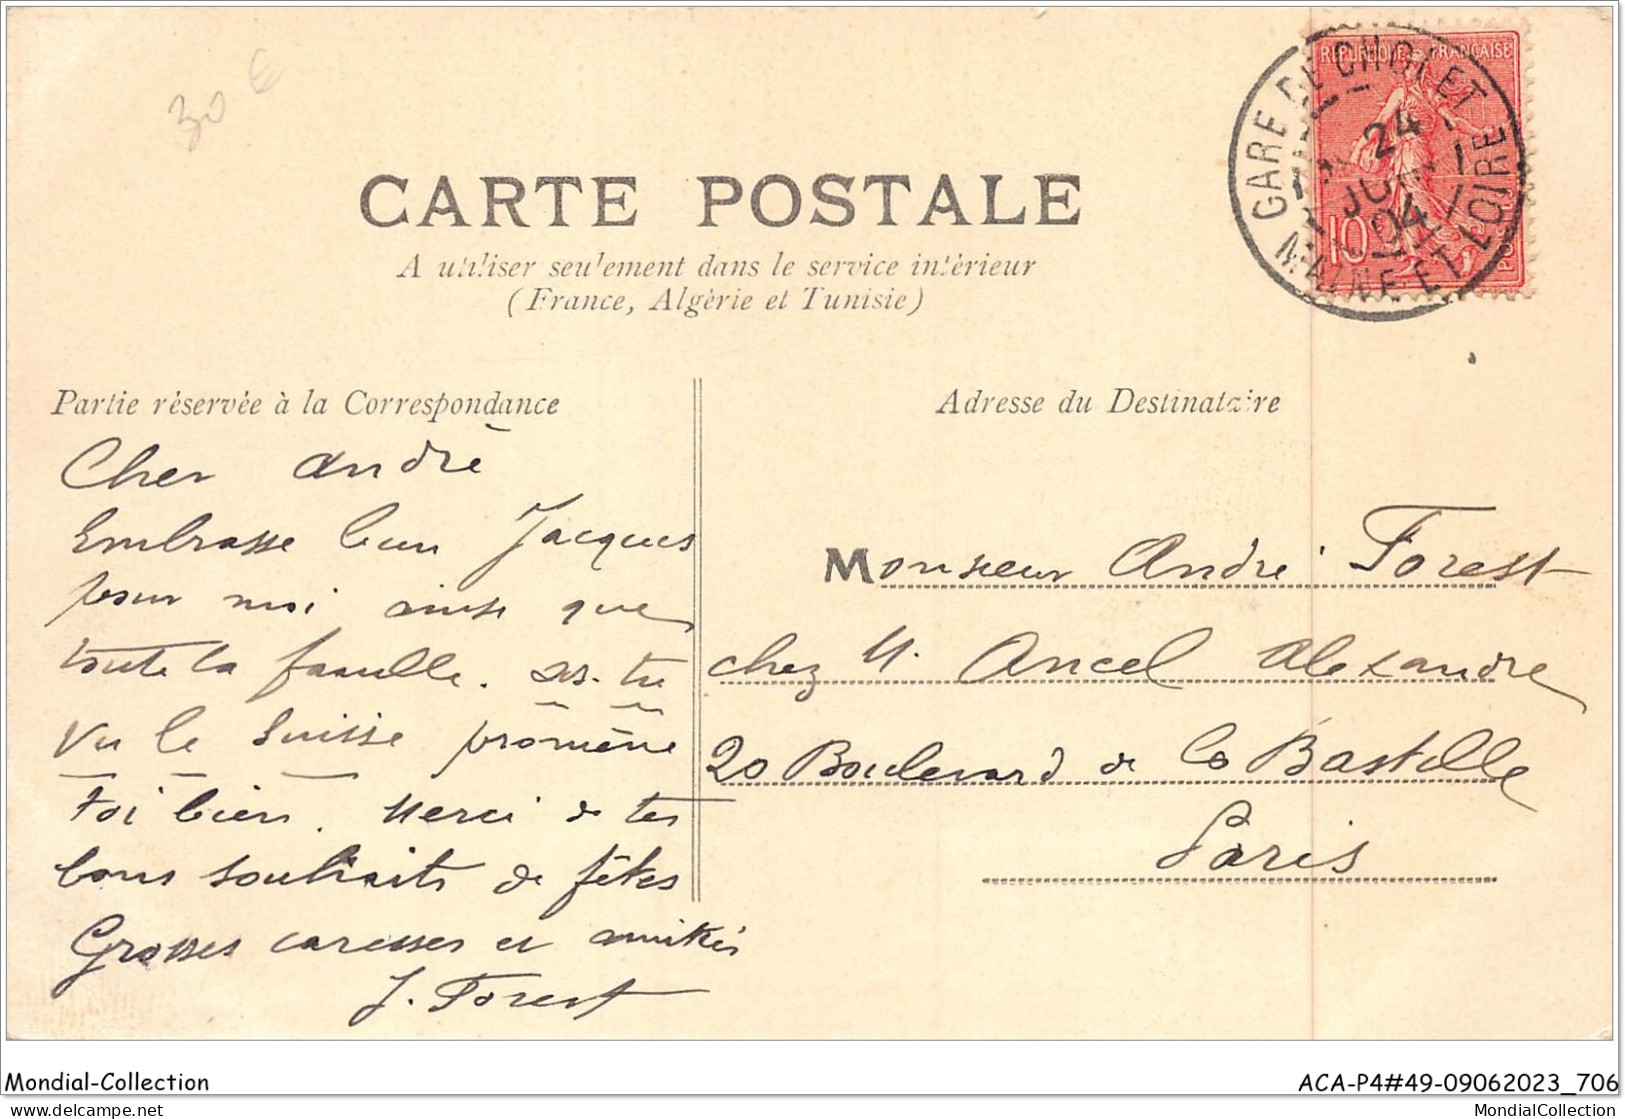 30 €
CARTE POSTALE
A utiliser seulement dans le service intérieur
(France, Algérie et Tunisie)
REPUBLIQUE FRANÇAISE
10
GARE DE CHOLET
24
JUIN
04
MAINE ET LOIRE
Partie réservée à la Correspondance
Adresse du Destinataire
Cher André
Embrasse bien Jacques
pour moi ainsi que
toute la famille. as-tu
vu le Suisse promène
toi bien. Merci de tes
bons souhaits de fêtes
Grosses caresses et amitiés
J. Forest
Monsieur André Forest
chez M. Ancel Alexandre
20 Boulevard de la Bastille
Paris
Mondial-Collection
ACA-P4#49-09062023_706
delcampe.net
MondialCollection